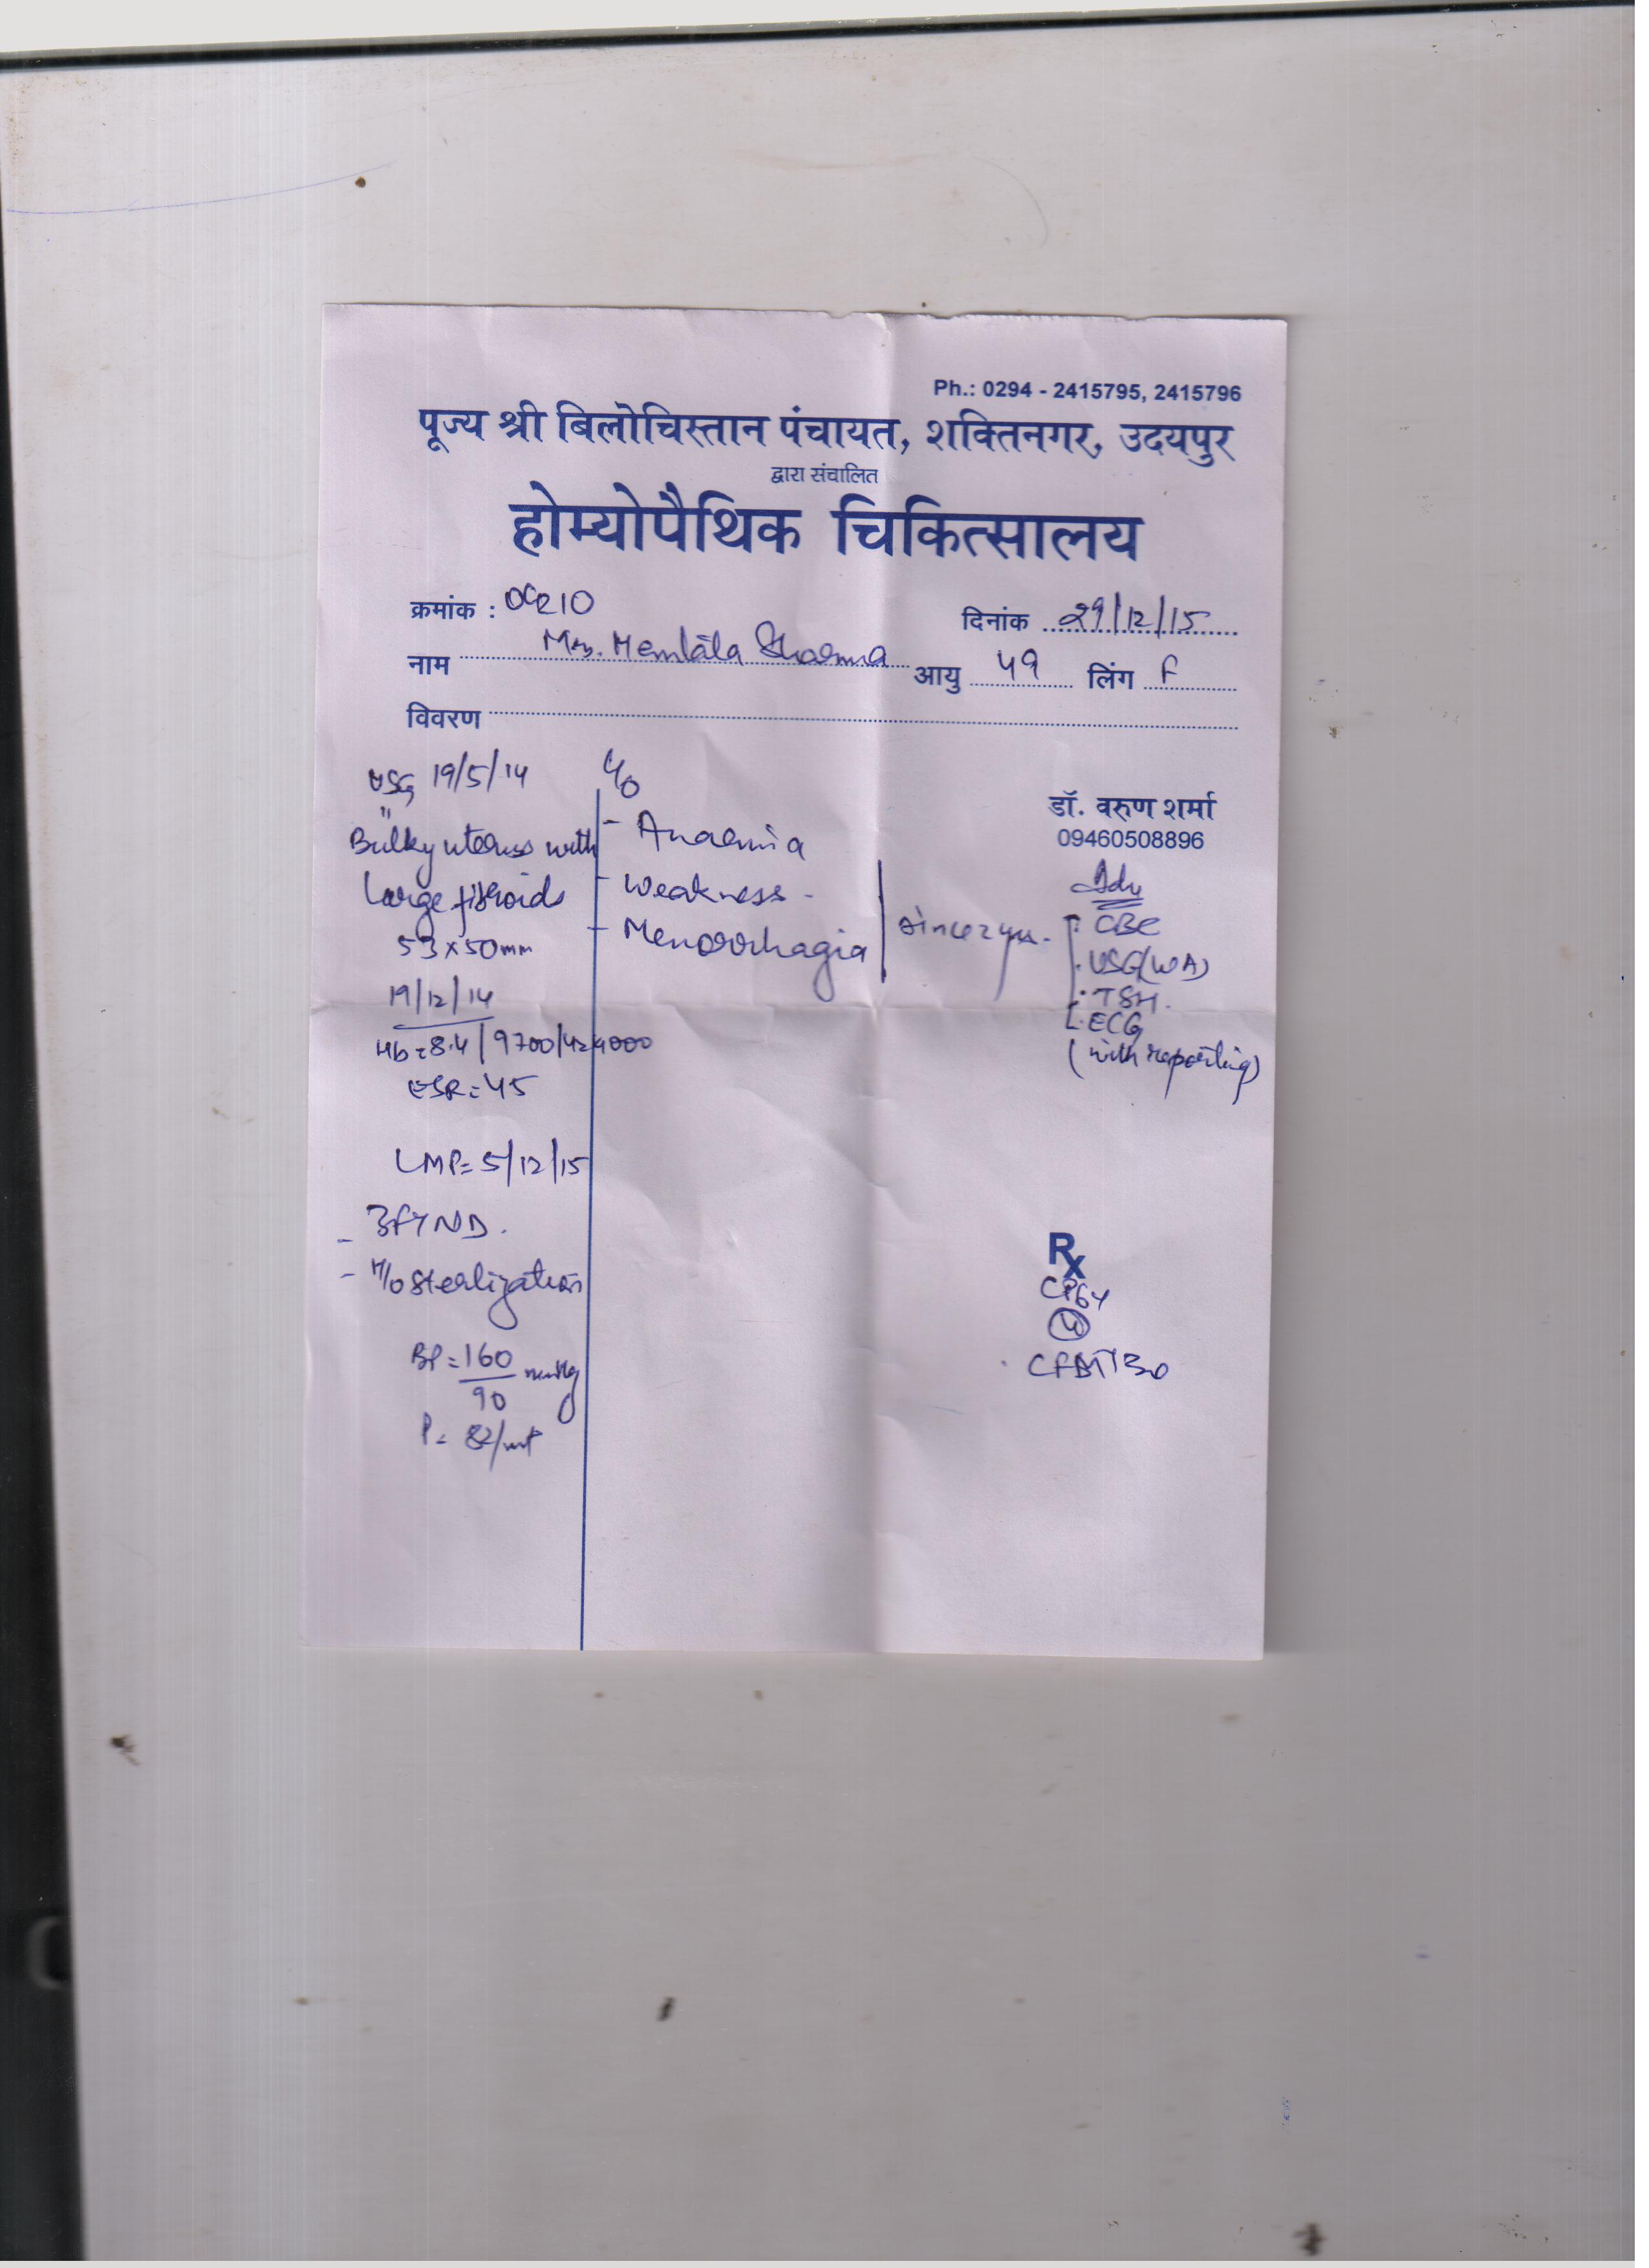 Ph.: 0294 - 2415795, 2415796
पूज्य श्री बिलोचिस्तान पंचायत, शक्तिनगर, उदयपुर
द्वारा संचालित
होम्योपैथिक चिकित्सालय
क्रमांक :
दिनांक 29/12/15
नाम Mrs. Hemlata Sharma आयु 49 लिंग F
विवरण
USG 19/5/14
Bulky uterus with
Large fibroids
53 x 50mm
19/12/14
Hb = 8.4 | 9700/424000
ESR = 45
LMP = 5/12/15
- 3FTND.
- H/o sterlization
BP = 160/90 mmHg
P = 82/mt
C/o
- Anaemia
- Weakness -
- Menorrhagia
since 2 yrs.
डॉ. वरुण शर्मा
09460508896
Adv
. CBC
. USG (WA)
. TSH.
. ECG
(with reporting)
Rx